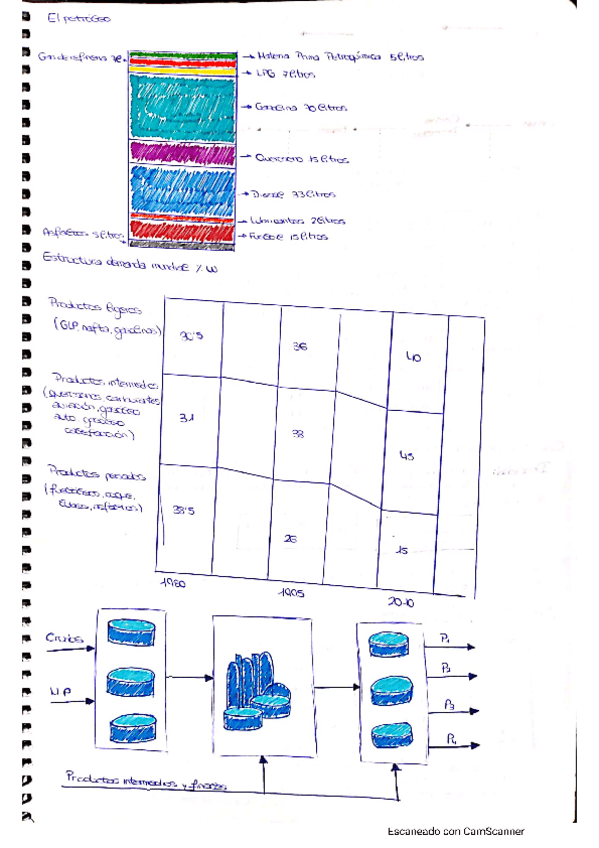 El petróleo
Gas de refinería 2l.
Materia Prima Petroquímica 5 litros
LPG 7 litros
Gasolina 30 litros
Queroseno 15 litros
Diesel 33 litros
Lubricantes 2 litros
Asfaltos 5 litros
Fueloil 15 litros
Estructura demanda mundial % w
Productos ligeros
(GLP, nafta, gasolinas)
30'5
36
40
Productos intermedios
(querosenos, carburantes
aviación, gasóleo
auto, gasóleo
calefacción)
31
38
45
Productos pesados
38'5
26
15
1980
1995
2010
Crudos
MP
P₁
P₂
P₃
P₄
Productos intermedios y finales
Escaneado con CamScanner